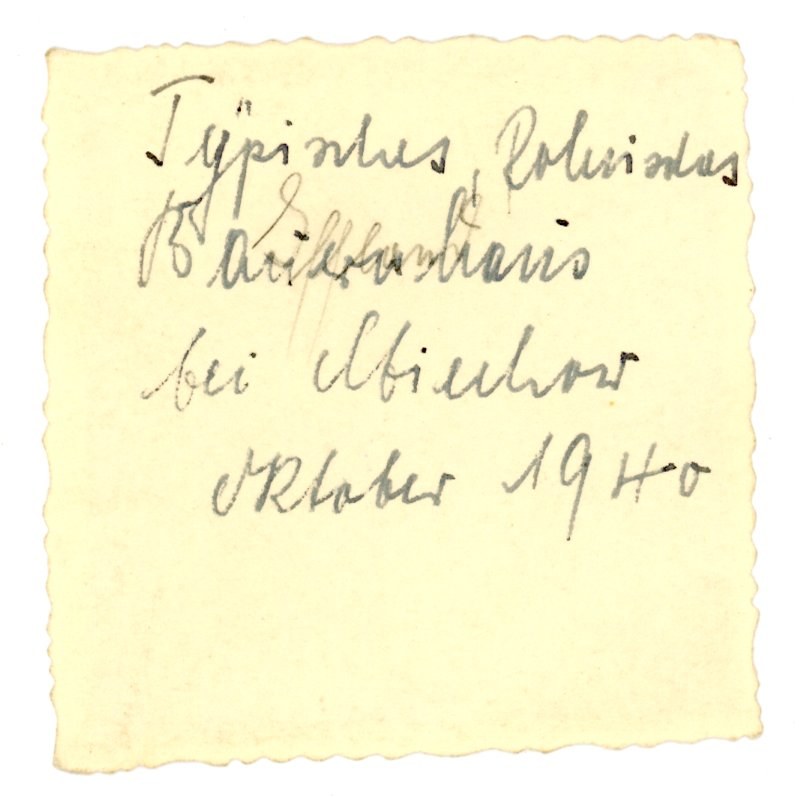 Typisches, Polnisches
Bauernhaus
bei Miechow
Oktober 1940